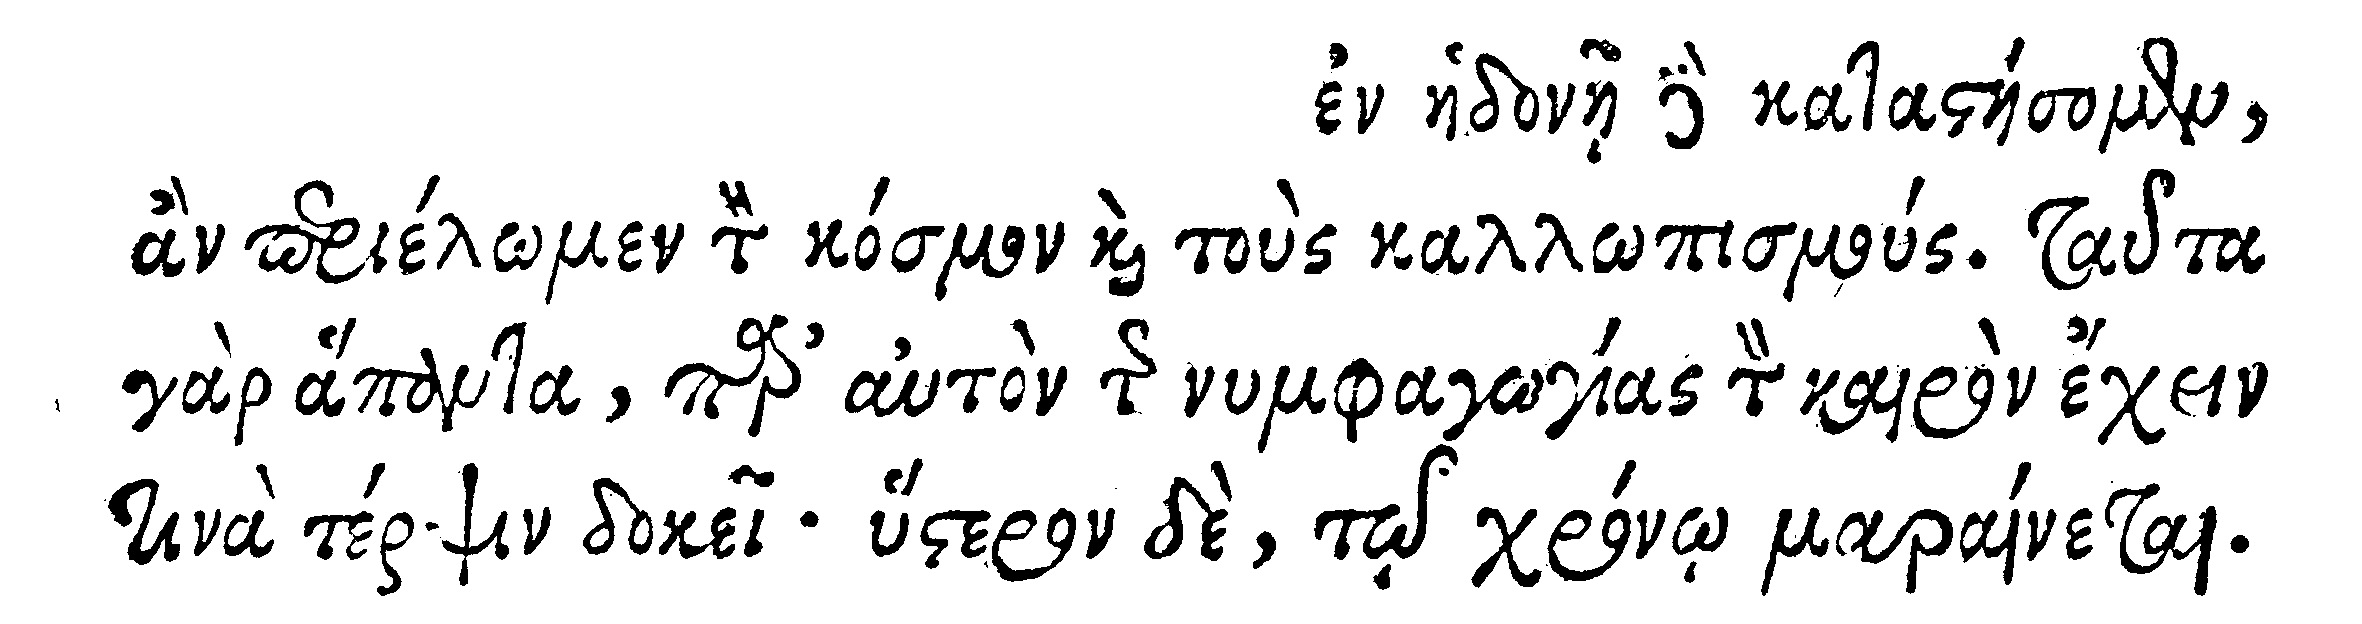 ἐν ἡδονῇ γὰρ καταστήσομεν,
ἂν περιέλωμεν τὸν κόσμον καὶ τοὺς καλλωπισμούς. Ταῦτα
γὰρ ἅπαντα, παρ' αὐτὸν τῆς νυμφαγωγίας τὸν καιρὸν ἔχειν
τινὰ τέρψιν δοκεῖ· ὕστερον δὲ, τῷ χρόνῳ μαραίνεται.